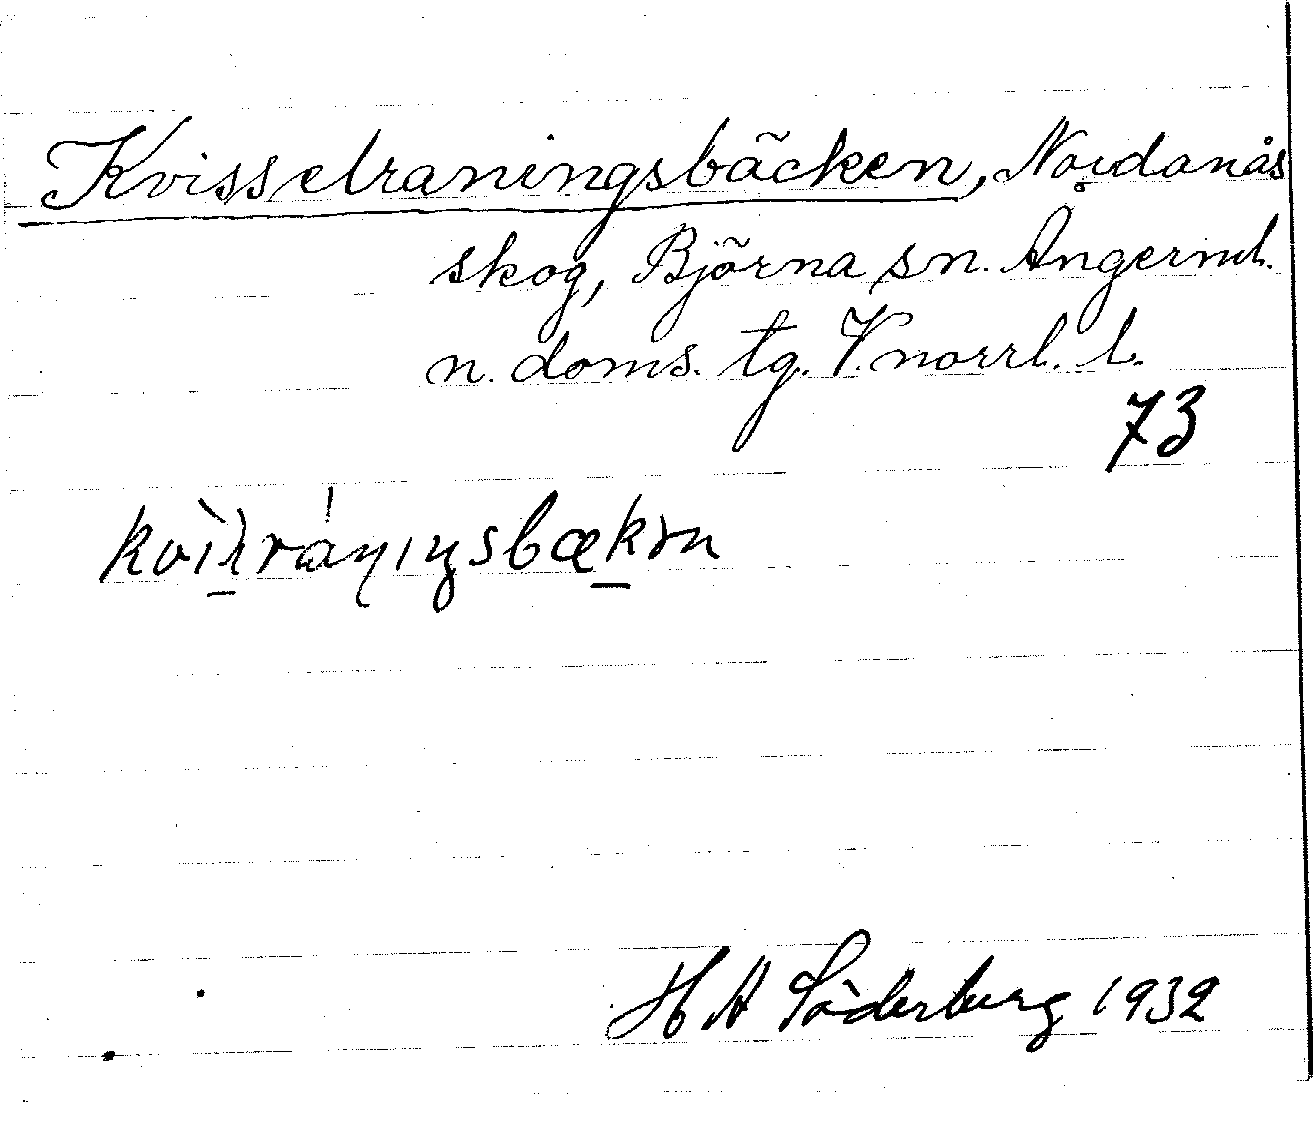 Kvisselraningsbäcken, Nordanås
skog, Björna sn. Ångerml.
n. doms. tg. V. norrl. l.
73
H A Söderberg 1932